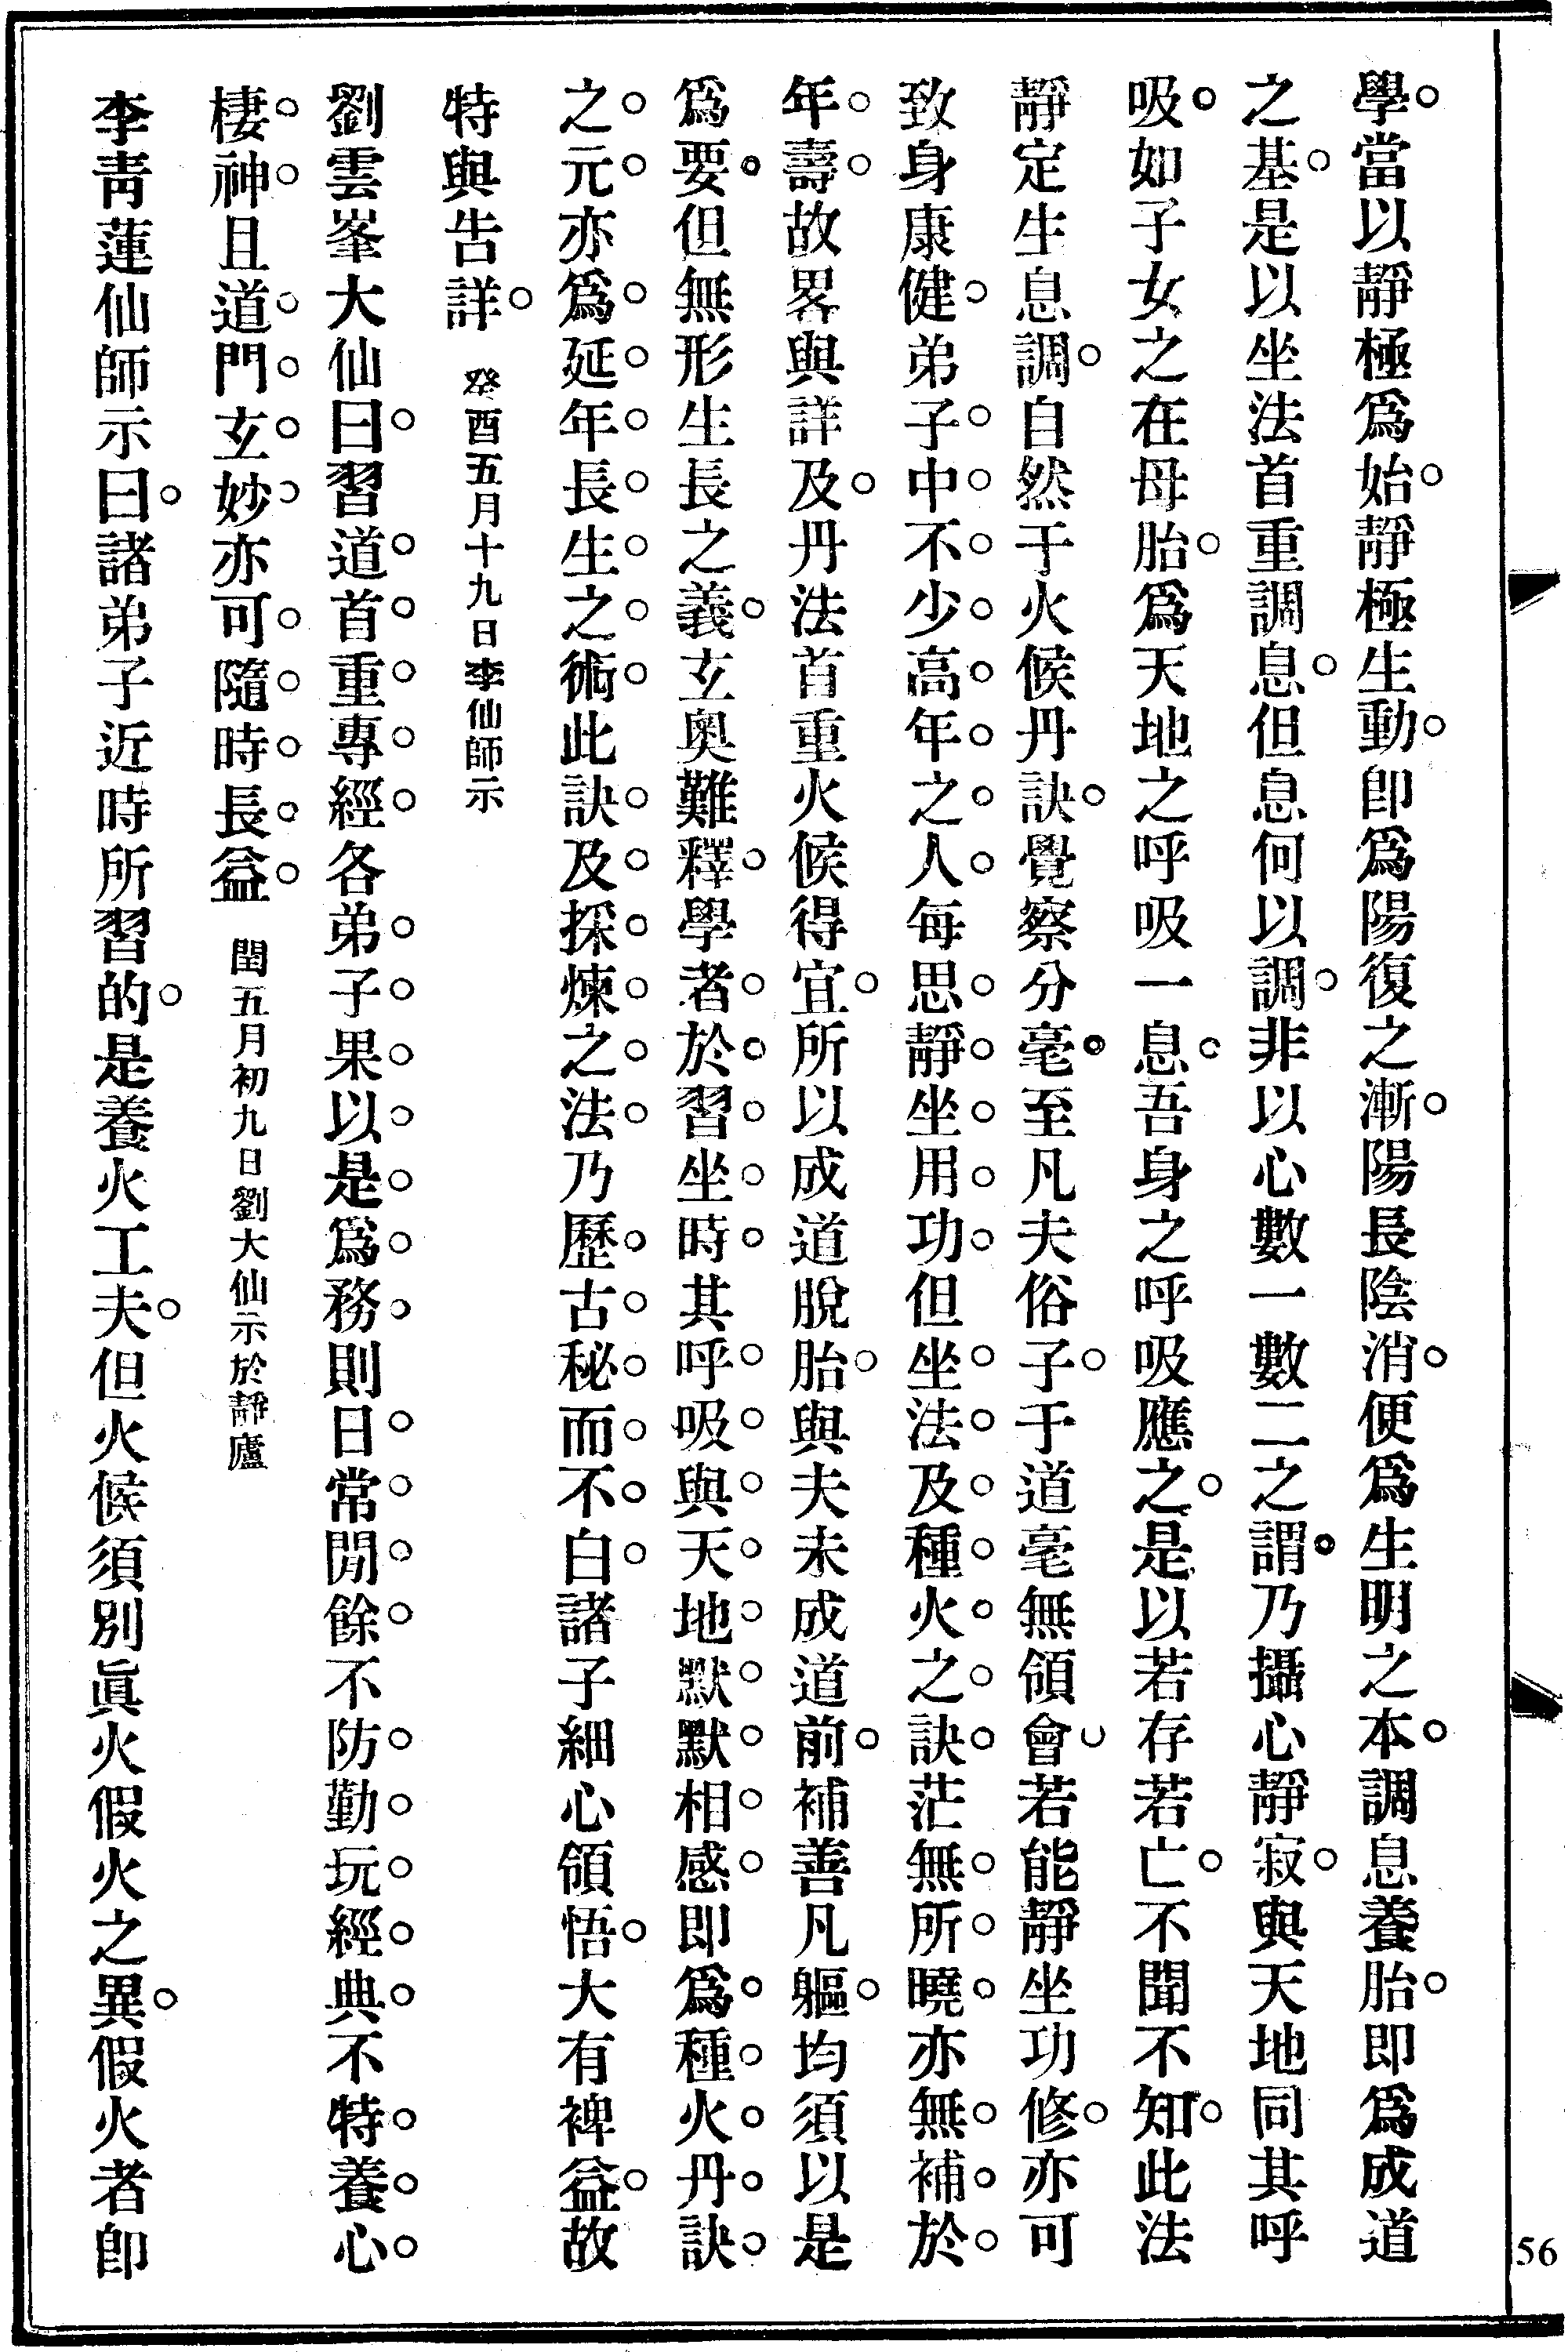 學當以靜極爲始靜極生動卽爲陽復之漸陽長陰消便爲生明之本調息養胎即爲成道
之基是以坐法首重調息但息何以調非以心數一數二之謂乃攝心靜寂與天地同其呼
吸如子女之在母胎爲天地之呼吸一息吾身之呼吸應之是以若存若亡不聞不知此法
靜定生息調自然于火候丹訣覺察分毫至凡夫俗子于道毫無領會若能靜坐功修亦可
致身康健弟子中不少高年之人每思靜坐用功但坐法及種火之訣茫無所曉亦無補於
年壽故畧與詳及丹法首重火候得宜所以成道脫胎與夫未成道前補善凡軀均須以是
爲要但無形生長之義玄奥難釋學者於習坐時其呼吸與天地默默相感即爲種火丹訣
之元亦爲延年長生之術此訣及採煉之法乃歷古秘而不白諸子細心領悟大有裨益故
特與告詳 癸酉五月十九日李仙師示
劉雲峯大仙曰習道首重專經各弟子果以是爲務則日常閒餘不防勤玩經典不特養心
棲神且道門玄妙亦可隨時長益 閏五月初九日劉大仙示於靜廬
李青蓮仙師示曰諸弟子近時所習的是養火工夫但火候須別眞火假火之異假火者卽
56